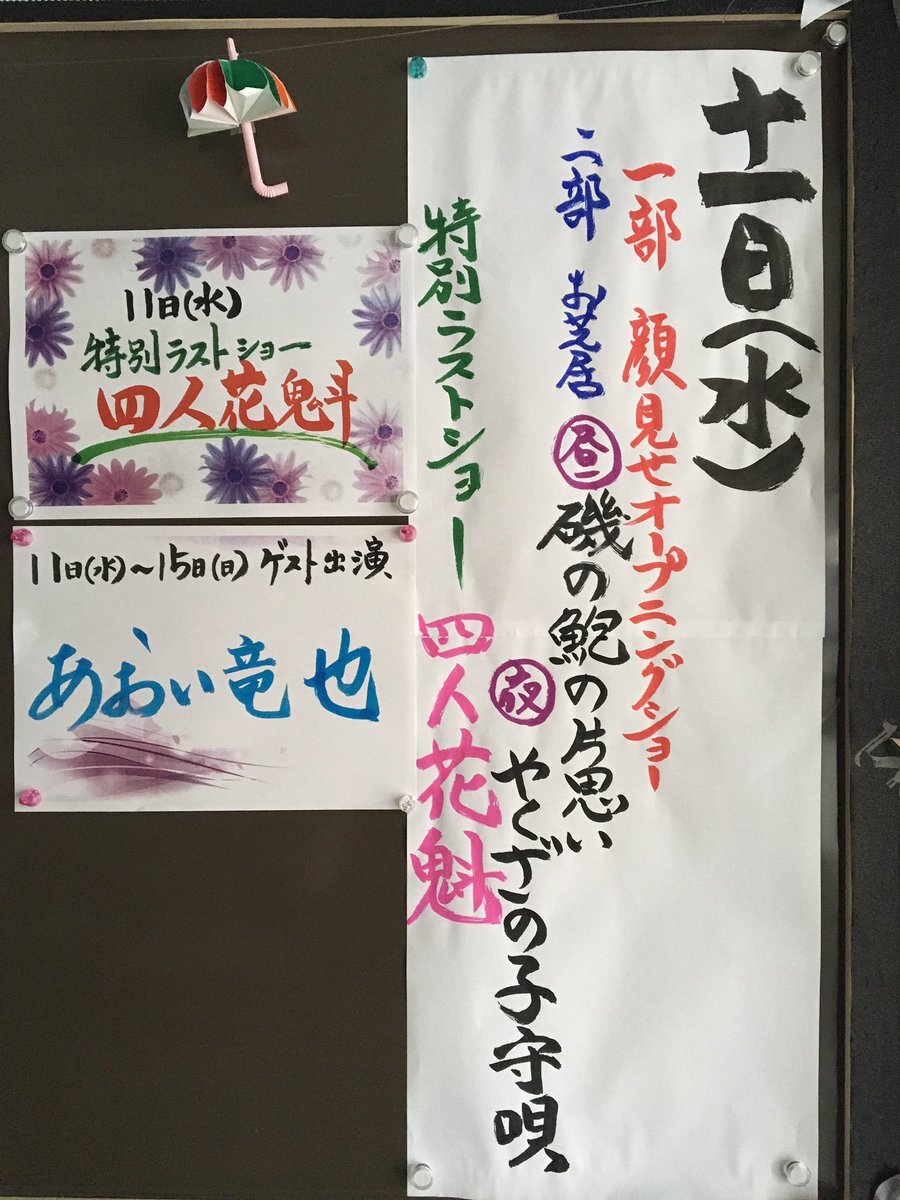 十一日(水)
一部 顔見せオープニングショー
二部 お芝居 昼 磯の鮑の片思い
夜 やくざの子守唄
特別ラストショー 四人花魁
11日(水)
特別ラストショー
四人花魁
11日(水)~15日(日) ゲスト出演
あおい竜也